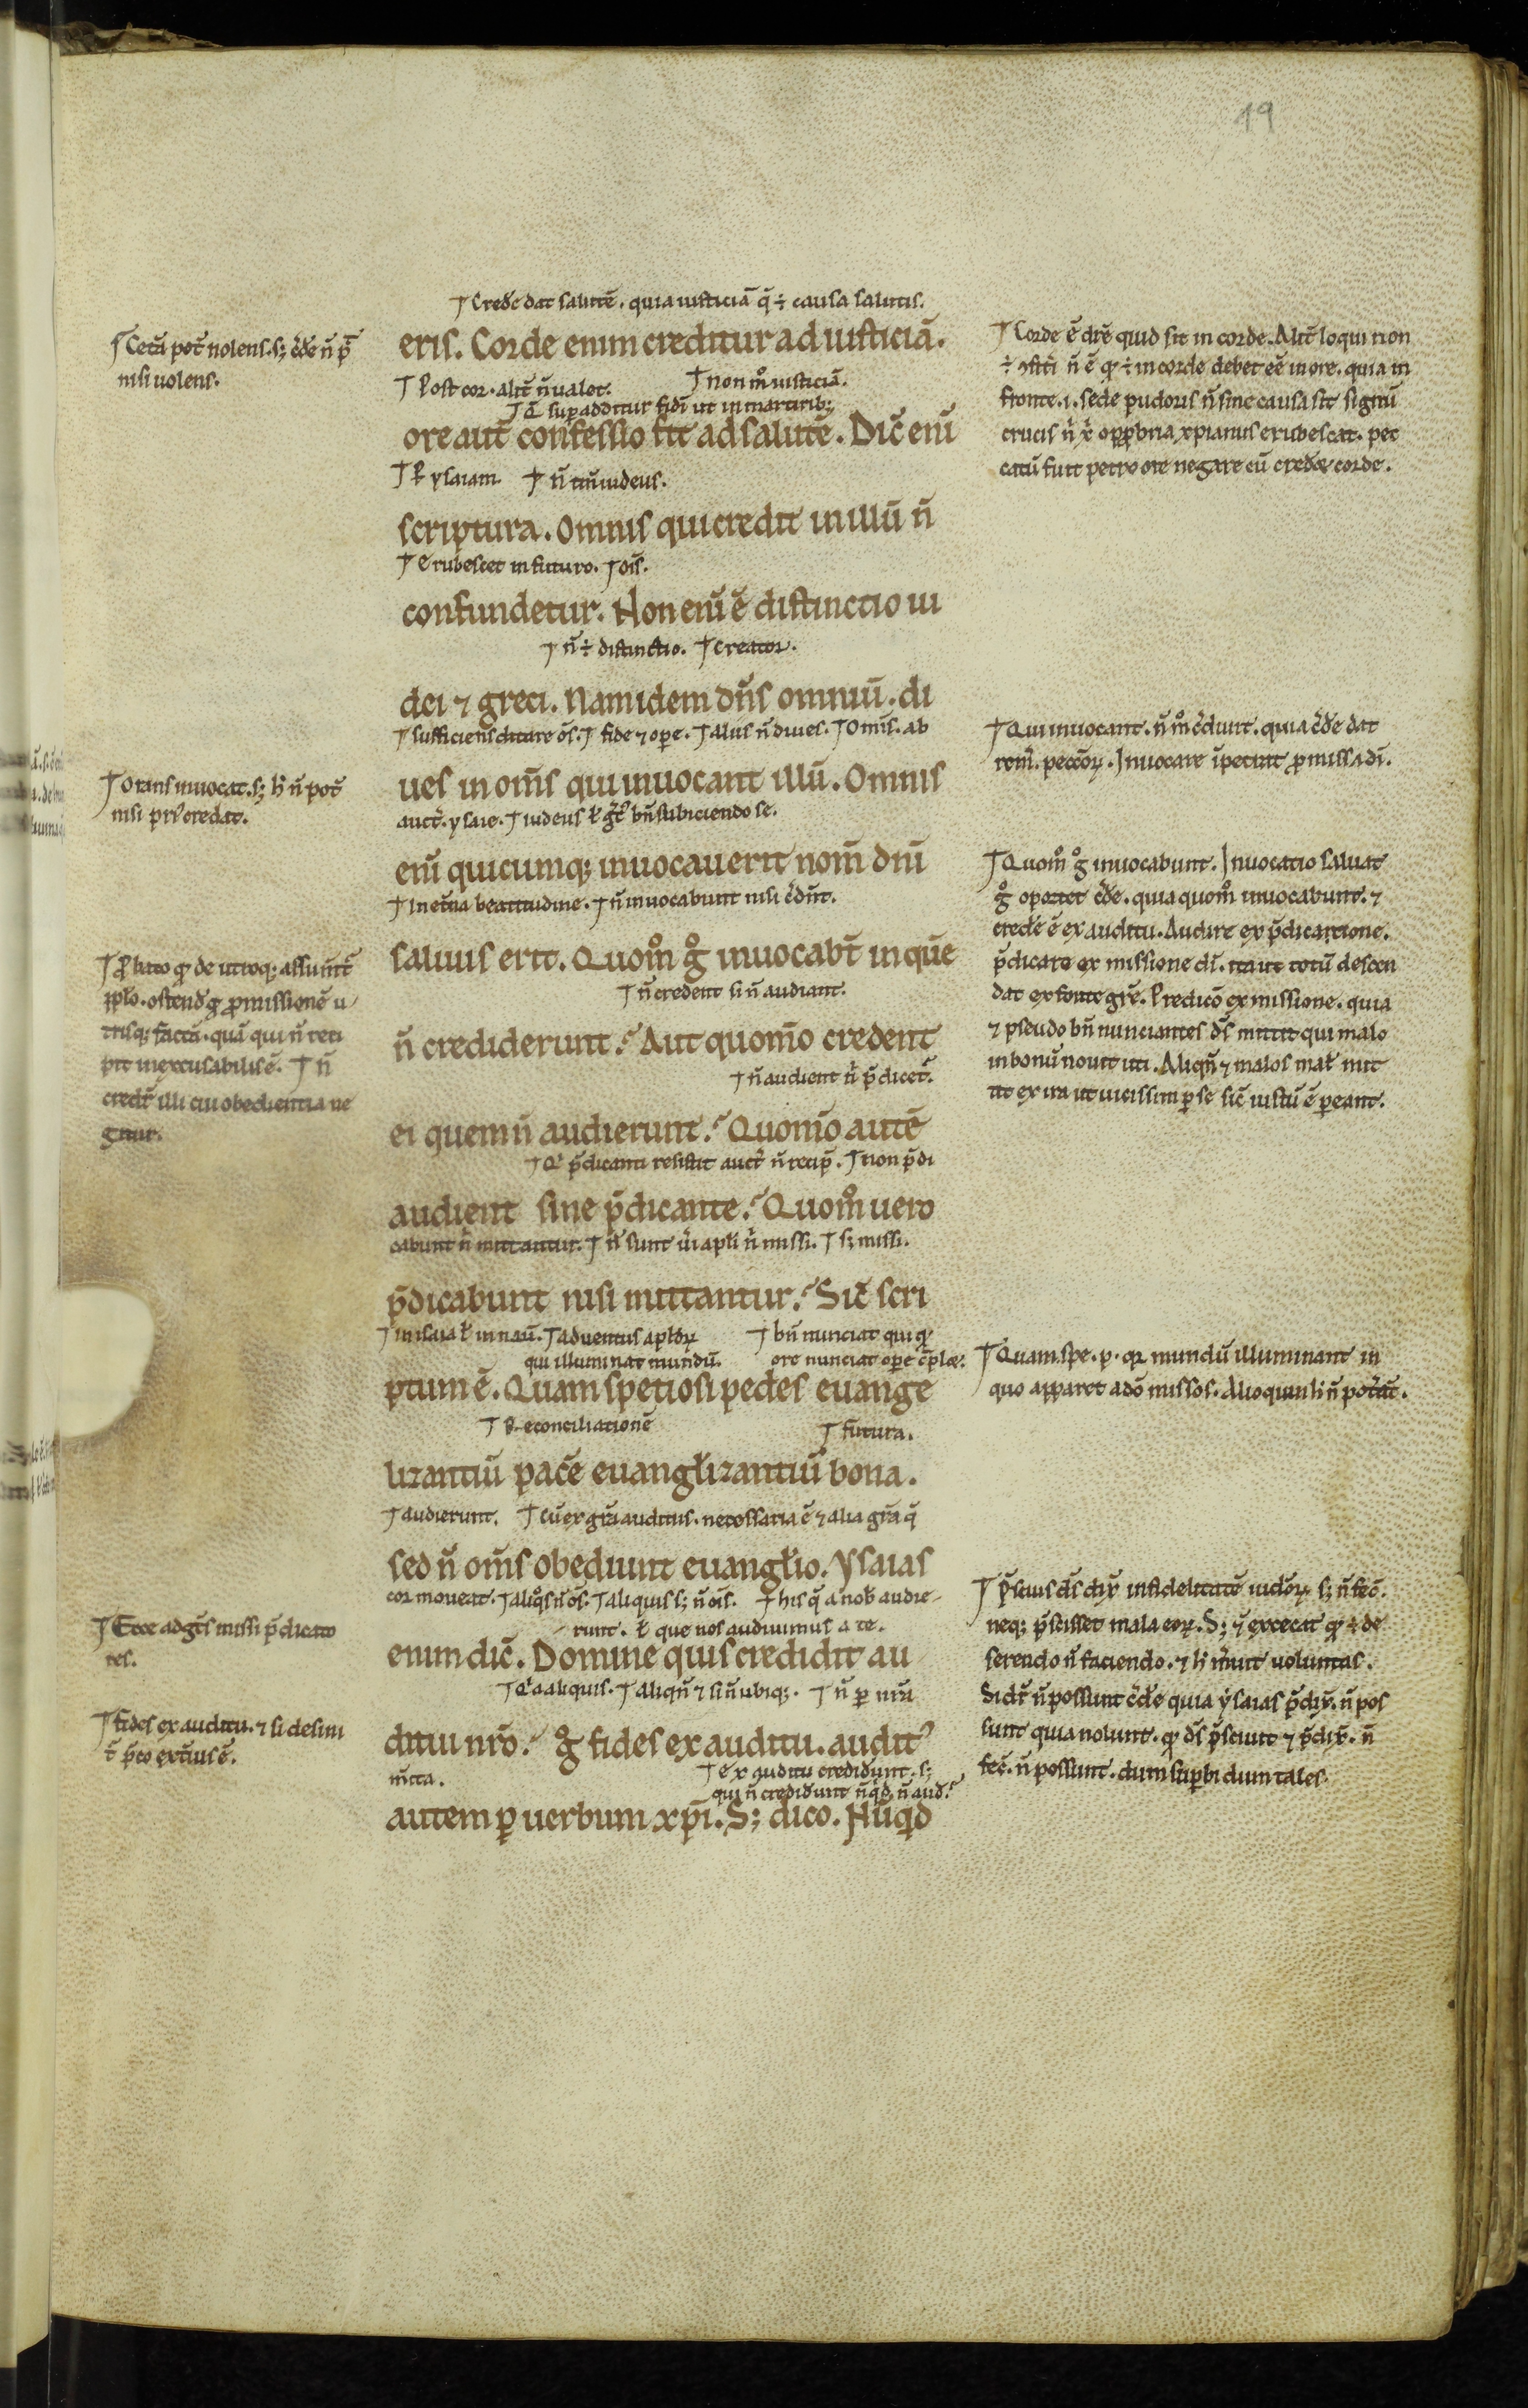 19
Crede dat salutē. quia iusticiā q̄ ÷ causa salutis.
eris. Corde enim creditur ad iusticiā.
Post cor. alit̄ n̄ ualet. non m̊ iusticiā.
q̄ sup additur fidi ut in martirib;
ore aut̄ confessio fit ad salutē. Dic̄ eni̅
ysaiam n̄ tm̄ iudeus.
scriptura. Omnis qui credit in illū n̄
Erubescet in futuro. ois̄.
confundetur. Non eni̅ ē distinctio iu
n̄ ÷ distinctio. creator.
dei ⁊ greci. Nam idem dn̄s omniū. di
sufficiens ditare os̄. fide ⁊ ope. alius n̄ diues. Omis̄. ab
ues in om̄s qui inuocant illū. Omnis
auct̄. ysaie. iudeus ł gr̄ bn̄ subiciendo se.
eni̅ quicumq; inuocauerit nom̄ dn̄i
In et̄na beatitudine. n̄ inuocabunt nisi c̄dn̄t.
saluus erit. Quom̊ g̊ inuocabt̄ in quē
n̄ credent si n̄ audiant.
n̄ crediderunt? Aut quom̄o credent
n̄ audient n̄ p̄dicet̄.
ei quem n̄ audierunt? Quom̄o autē
p̄dicanti resistit auct̄ n̄ recip̄. non p̄di
audient sine p̄dicante? Quom̊ uero
cabunt n̄ mittantur. n̄ sunt ū apłi n̄ missi. s; missi.
p̄dicabunt nisi mittantur? Sic̄ scri
in isaia ł in naū. aduentus apłoꝝ bn̄ nunciat qui qͩ
qui illuminat mundū. ore nunciat ope c̄plet.
ptum ē. Quam spetiosi pedes euange
Reconciliationē futura.
lizantiū pacē euangłizantiū bona.
audierunt. Cū ex gr̄a auditus. necessaria ē ⁊ alia gr̄a q̄
sed n̄ om̄s obediunt euangłio. Ysaias
cor moueat. aliqͥs n̄ os̄. aliquis s; n̄ ois̄. his q̄ a nob̄ audie-
runt. ł que nos audiuimus a te.
enim dic̄. Domine quis credidit au
aliquis. Aliqn̄ ⁊ si n̄ ubiq;. n̄ ꝑ nr̄a
ditui nr̄o? g̊ fides ex auditu. audit᷒
m̄ita. ex auditu credidunt. s;
qui n̄ credidunt nūqͥd n̄ aud.
autem ꝑ uerbum xp̄i. S; dico. Nūqͥd
Cet̄a pot̄ nolens. s; c̄de n̄ p̄
nisi uolens.
Orans inuocat. s; h̄ n̄ pot̄
nisi pri᷒ credat.
Probato qͩ de utroq; assunt̄
pplo. ostend̄ g̊ promissionē u-
trisq; factā. quā qui n̄ reci
pit inexcusabilis ē. n̄
credr̄ illi cui obedientia ne
gatur.
Ecce ad gt̄s missi p̄dicato
res.
Fides ex auditu. ⁊ si desint
exteri᷒ ē.
Corde ē dr̄e quid sit in corde. Alit̄ loqui non
n̄ ē qͩ ÷ in corde debet eē in ore. quia in
fronte .i. sede pudoris n̄ sine causa sit signū
crucis n̄ x̄ opprobria xpianus erubescat. pec
catū fuit petro ore negare cū crederet corde.
Qui inuocant. n̄ m̊ c̄dunt. quia c̄de dat
rem̄. peccōꝝ. Inuocare ip̄etrat promissa di̅.
Quom̊ g̊ inuocabunt. Inuocatio saluat
g̊ oportet c̄de. quia quom̊ inuocabunt. ⁊
crede ē ex auditu. Audire ex p̄dicatione.
p̄dicare ex missione di̅. ita ut totū descen
dat ex fonte gr̄e. Predicō ex missione. quia
⁊ pseudo bn̄ nunciantes ds̄ mittit qui malo
in bonū nouit uti. Aliqn̄ ⁊ malos mał mit
tit ex ira ut uicissim ꝑ se sic̄ iustū ē pereant.
Quam spe. p. qꝛ mundū illuminant in
quo apparet a do̅ missos. Alioquin h̄ n̄ pot̄āt.
P̄scius ds̄ dix̄ infidelitatē iudoꝝ s; n̄ fec̄.
neq; p̄scisset mala eoꝝ. S; ⁊ excecat qͩ ÷ de
serendo n̄ faciendo. ⁊ h̄ m̄uit uoluntas.
Si dr̄ n̄ possunt c̄de quia ysaias p̄dix̄. n̄ pos
sunt quia nolunt. qͩ ds̄ p̄sciuit ⁊ p̄dix̄. n̄
fec̄. n̄ possunt. dum superbi dum tales.